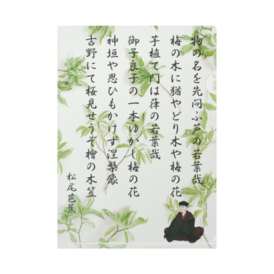 物の名を先問ふ芦の若葉哉
梅の木に猶やどり木や梅の花
芋植て門は葎の若葉哉
御子良子の一本ゆかし梅の花
神垣や思ひもかけず涅槃像
吉野にて桜見せうぞ檜の木笠
松尾芭蕉